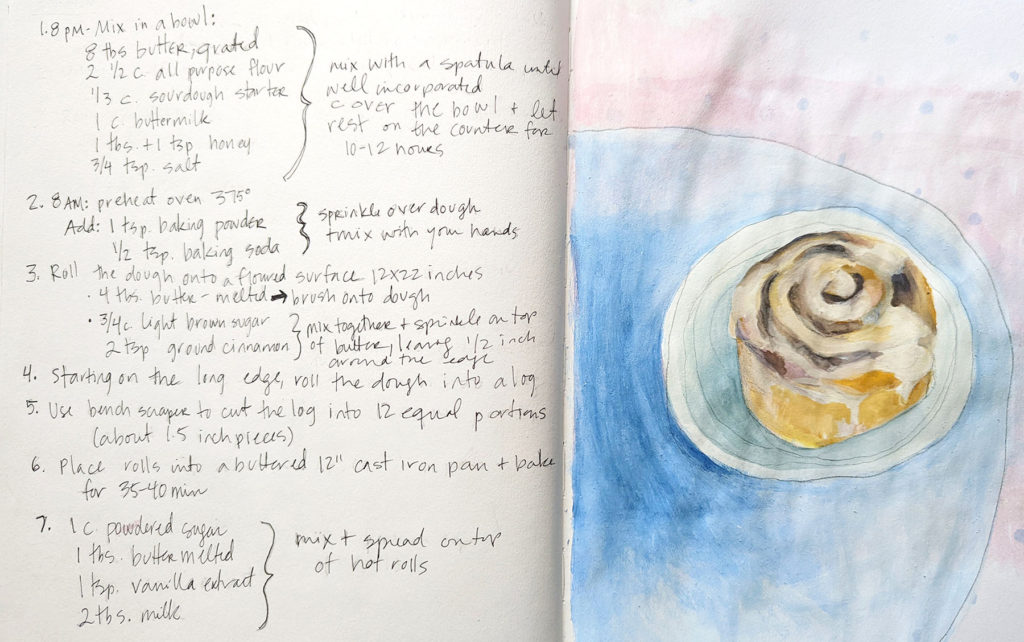 1. 8 pm - Mix in a bowl:
8 tbs butter, grated
2 1/2 c. all purpose flour
1/3 c. sourdough starter
1 c. buttermilk
1 tbs. + 1 tsp honey
3/4 tsp. salt
mix with a spatula until
well incorporated
cover the bowl + let
rest on the counter for
10-12 hours
2. 8 AM: preheat oven 375°
Add: 1 tsp. baking powder
1/2 tsp. baking soda
sprinkle over dough
+ mix with your hands
3. Roll the dough onto a floured surface 12x22 inches
· 4 tbs. butter - melted → brush onto dough
· 3/4 c. light brown sugar
2 tsp ground cinnamon
mix together + sprinkle on top
of butter, leaving 1/2 inch
around the edge
4. Starting on the long edge, roll the dough into a log
5. Use bench scraper to cut the log into 12 equal portions
(about 1.5 inch pieces)
6. Place rolls into a buttered 12" cast iron pan + bake
for 35-40 min
7. 1 c. powdered sugar
1 tbs. butter melted
1 tsp. vanilla extract
2 tbs. milk
mix + spread on top
of hot rolls